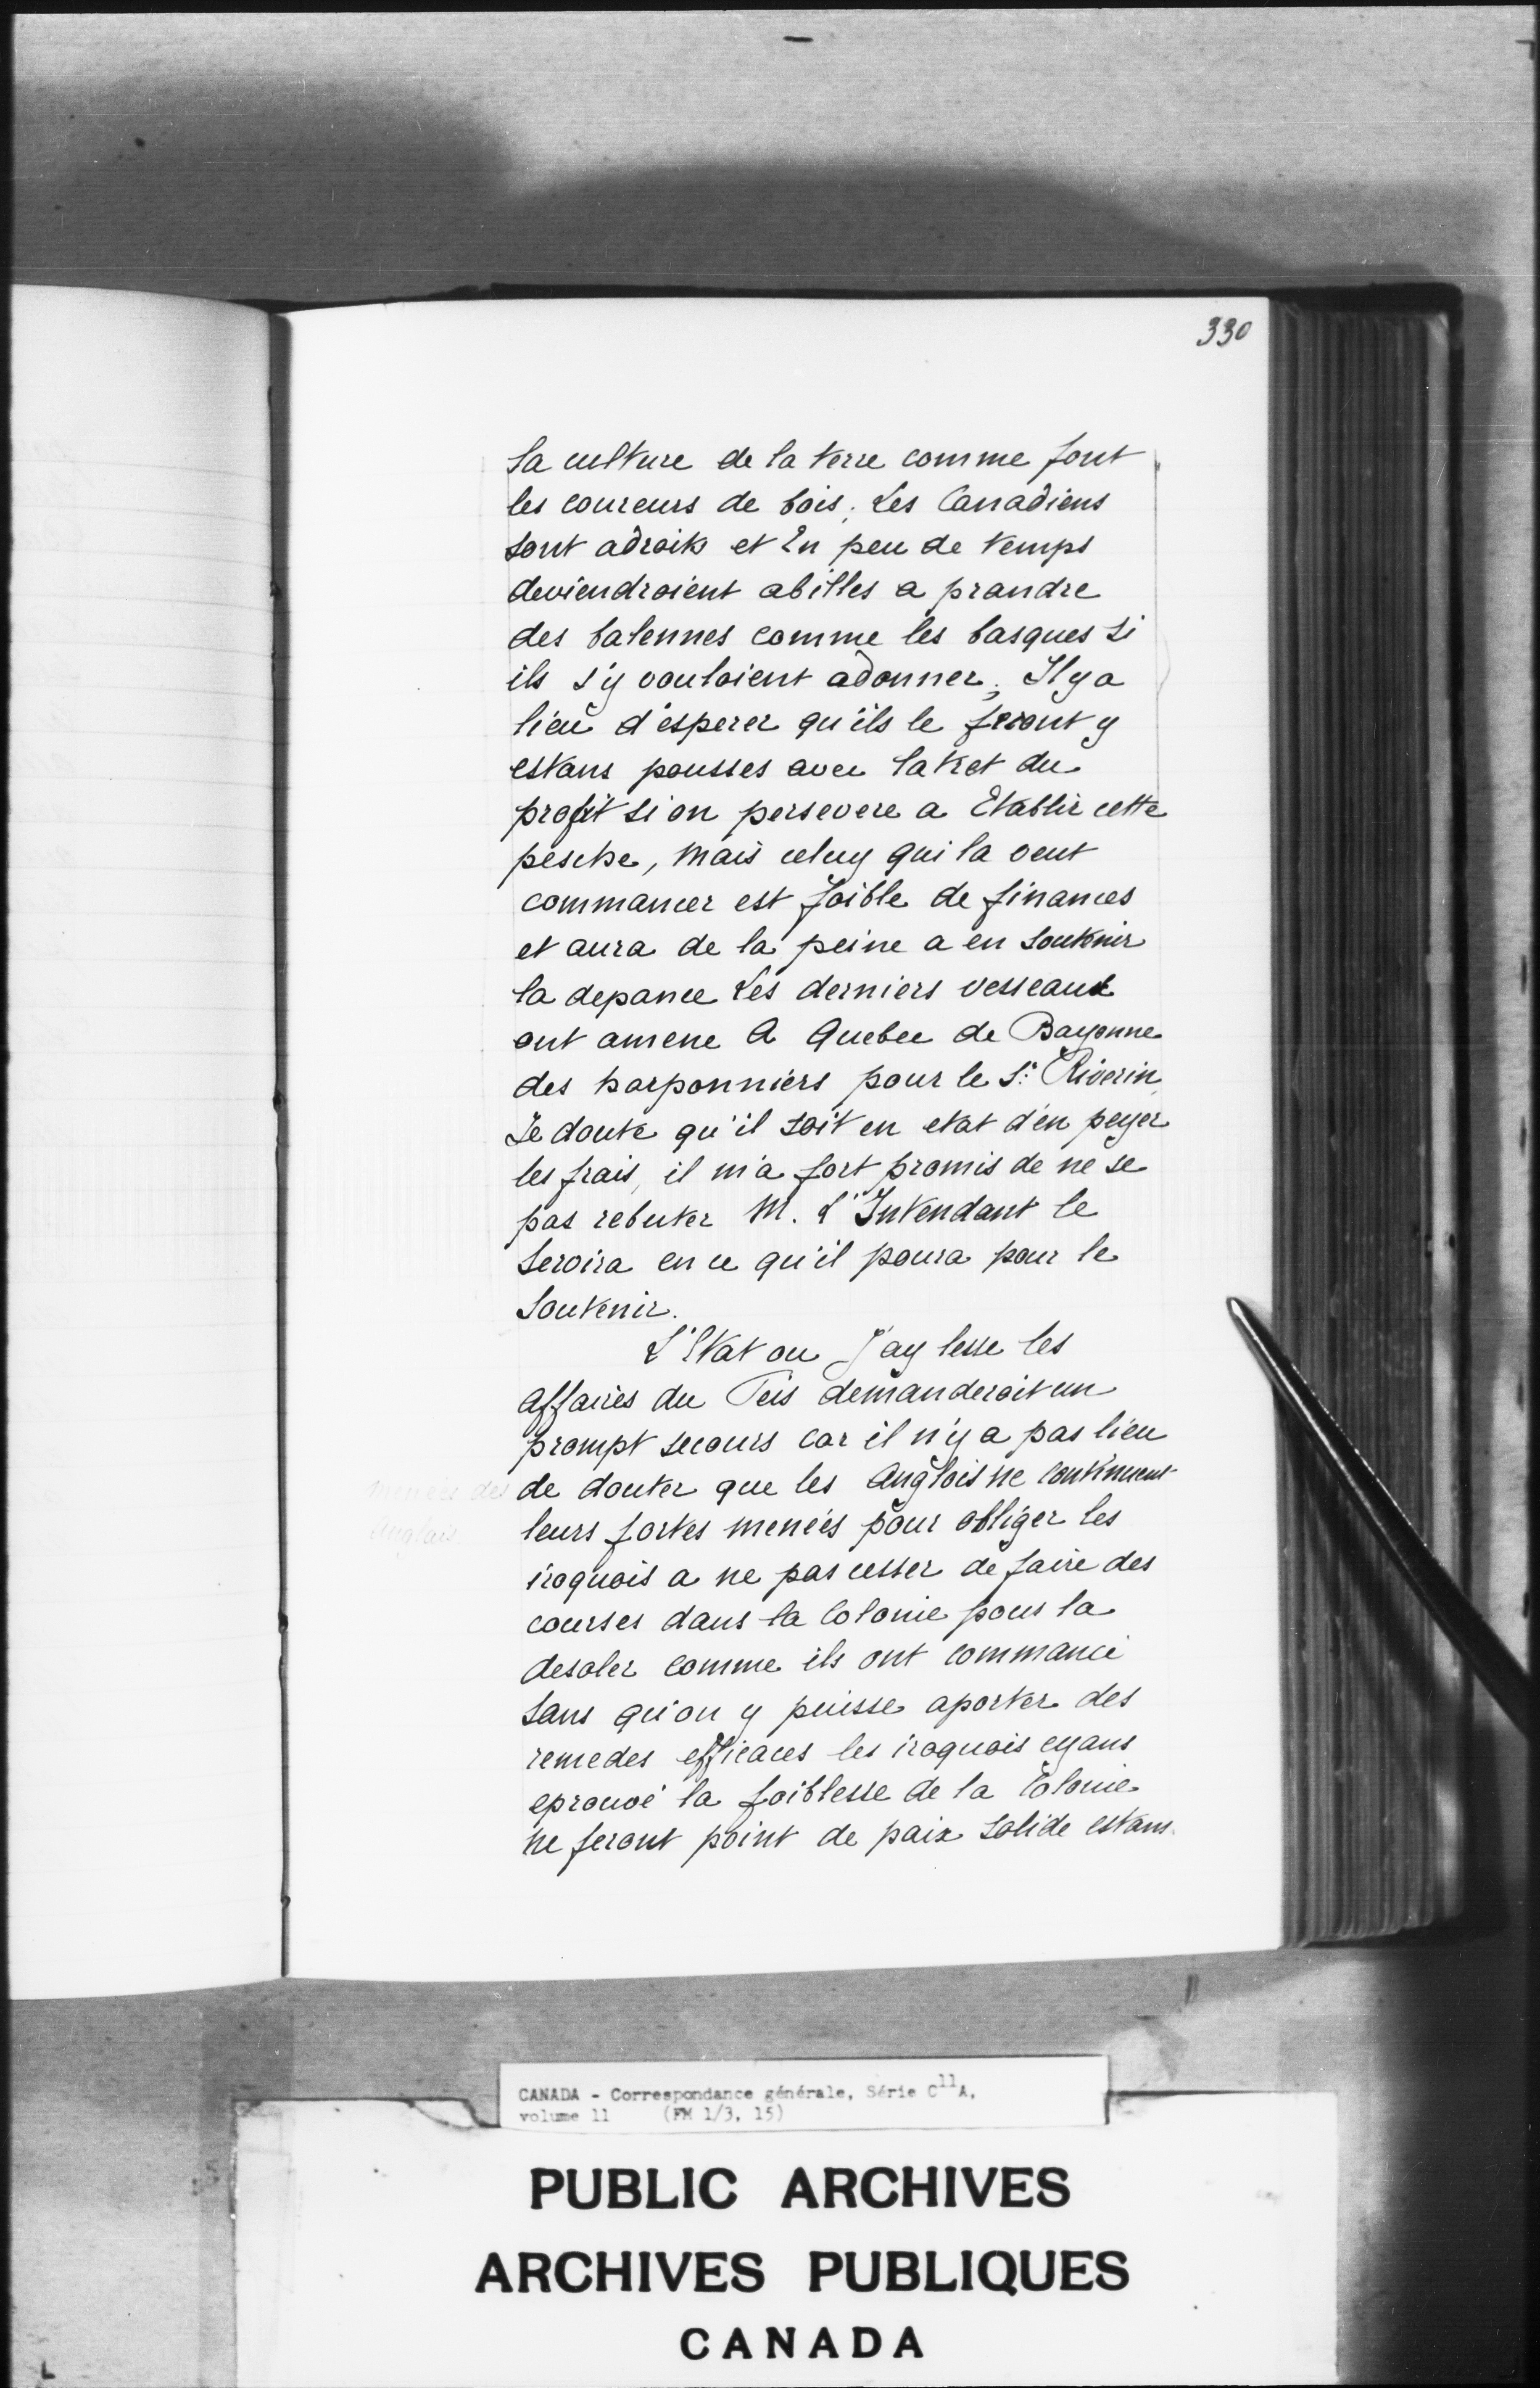 330
la culture de la terre comme font
les coureurs de bois; Les Canadiens
sont adroits et En peu de temps
deviendroient abilles a prandre
des balennes comme les basques si
ils s'y vouloient adonner; Il y a
lieu d'esperer qu'ils le feront y
estans pousses avec latret du
profit si on persevere a Etablir cette
pesche, mais celuy qui la veut
commancer est foible de finances
et aura de la peine a en soutenir
la depance Les derniers vesseaux
ont amene A Quebec de Bayonne
des harponniers pour le Sr. Riverin,
Je doute qu'il soit en etat d'en peyer
les frais, il m'a fort promis de ne se
pas rebuter M. L'Intendant le
servira en ce qu'il poura pour le
soutenir.
L'Etat ou J'ay lesse les
affaires du Peis demanderoit un
prompt secours car il n'y a pas lieu
menées des
Anglais
de douter que les Anglois ne continuent
leurs fortes menées pour obliger les
iroquois a ne pas cesser de faire des
courses dans la Colonie pour la
desoler comme ils ont commancé
sans qu'on y puisse aporter des
remedes efficaces les iroquois eyans
eprouvé la foiblesse de la Colonie
ne feront point de paix solide estans
CANADA - Correspondance générale, Série C11A,
volume 11 (FM 1/3, 15)
PUBLIC ARCHIVES
ARCHIVES PUBLIQUES
CANADA
L